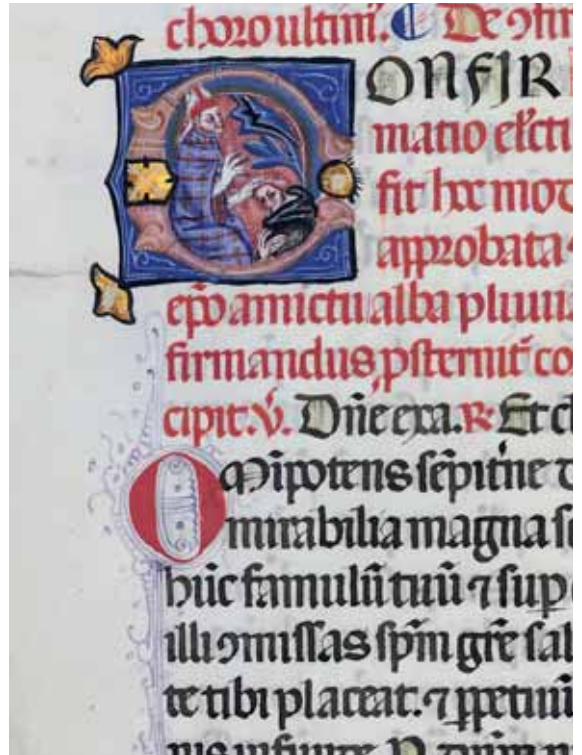 choro ultim̃. De ↄfir
CONFIR
matio elc̃ti
fit hoc mod
approbata ⁊
ep̃o amictu alba pluuia
firmandus, psternit̃ co
cipit. V̓. Dñe exa. R̓. Et cl
Om̃ipotens sẽpit̃ne d
mirabilia magna s
hũc famulũ tuũ ⁊ sup
illi ↄmissas sp̃m gr̃e sal
te tibi placeat. ⁊ ppetuũ